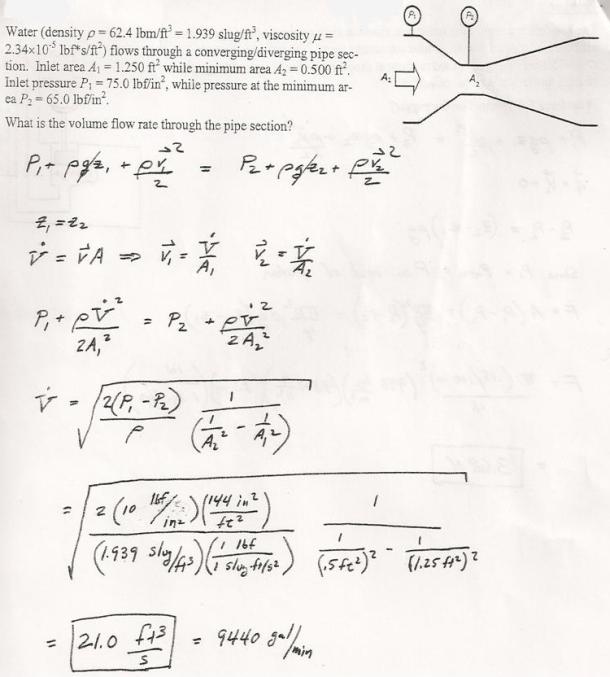 Water (density ρ = 62.4 lbm/ft³ = 1.939 slug/ft³, viscosity μ =
2.34×10⁻⁵ lbf*s/ft²) flows through a converging/diverging pipe sec-
tion. Inlet area A₁ = 1.250 ft² while minimum area A₂ = 0.500 ft².
Inlet pressure P₁ = 75.0 lbf/in², while pressure at the minimum ar-
ea P₂ = 65.0 lbf/in².
What is the volume flow rate through the pipe section?
P₁ P₂
A₁ A₂
P₁ + ρgz₁ + ρv⃗₁²/2 = P₂ + ρgz₂ + ρv⃗₂²/2
z₁ = z₂
V̇ = v⃗A ⇒ v⃗₁ = V̇/A₁ v⃗₂ = V̇/A₂
P₁ + ρV̇²/2A₁² = P₂ + ρV̇²/2A₂²
V̇ = √(2(P₁ - P₂)/ρ 1/(1/A₂² - 1/A₁²))
= √(2(10 lbf/in²)(144 in²/ft²)/(1.939 slug/ft³)(1 lbf/1 slug·ft/s²) 1/(1/(.5ft²)² - 1/(1.25 ft²)²))
= 21.0 ft³/s = 9440 gal/min